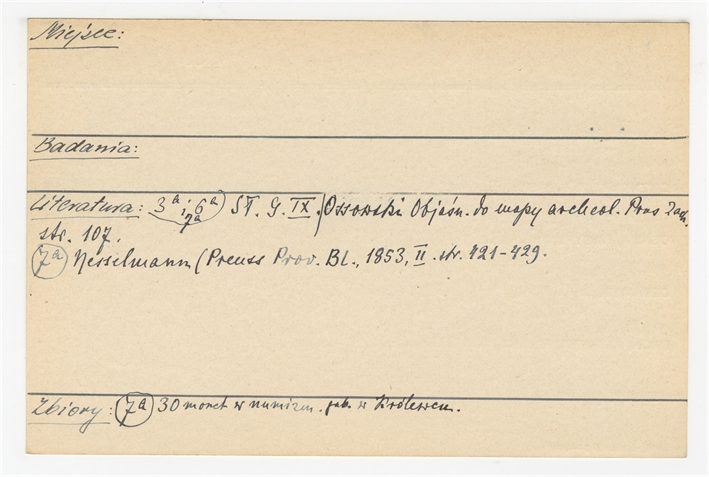 Miejsce:
Badania:
Literatura: 3a i 6a 7a) ST. G. IX. Ossowski Objaśn. do mapy archeol. Prus Zach.
str. 107.
7a) Nesselmann (Preuss Prov. Bl., 1853, II. str. 421-429.
Zbiory: 7a) 30 monet w numizm. gab. w Królewcu.